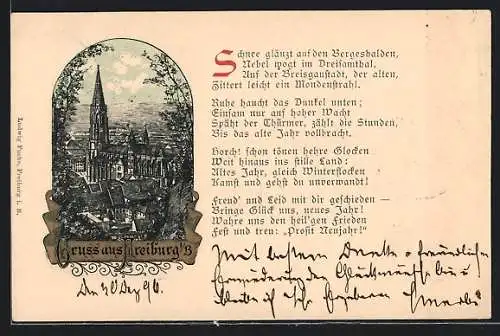 Schnee glänzt auf den Bergeshalden,
Nebel wogt im Dreisamthal,
Auf der Breisgaustadt, der alten,
Zittert leicht ein Mondenstrahl.
Ruhe haucht das Dunkel unten;
Einsam nur auf hoher Wacht
Späht der Thürmer, zählt die Stunden,
Bis das alte Jahr vollbracht.
Horch! schon tönen hehre Glocken
Weit hinaus ins stille Land:
Altes Jahr, gleich Winterflocken
Kamst und gehst du unverwandt!
Freud' und Leid mit dir geschieden —
Bringe Glück uns, neues Jahr!
Wahre uns den heil'gen Frieden
Fest und treu: „Prosit Neujahr!"
Gruss aus Freiburg i/B
Ludwig Fuchs, Freiburg i. B.
Mit bestem Danke + freundlicher
Erwiederung der Glückwünsche
bleibe ich Ihr
Den 30 Dez 96.